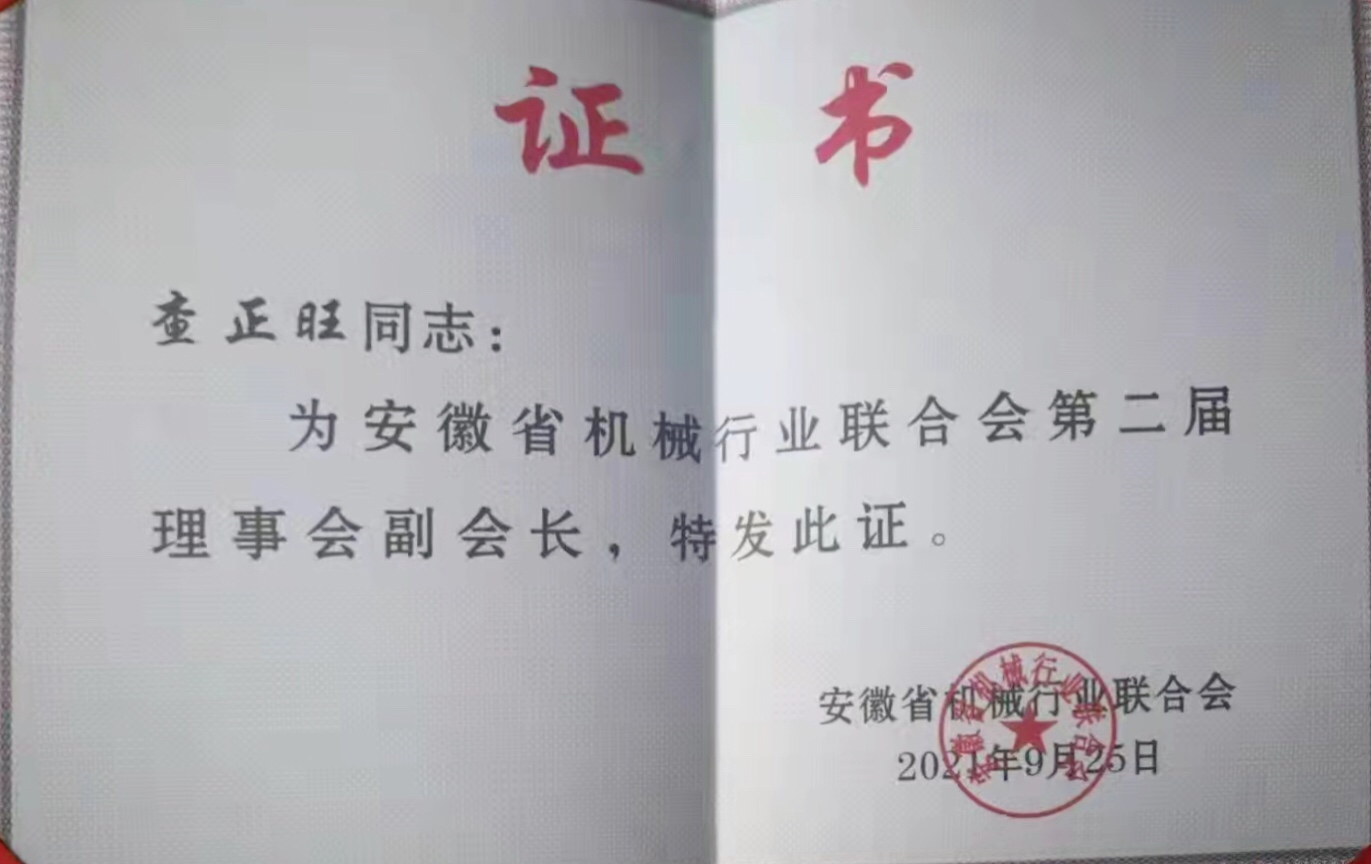 证书
查正旺同志：
为安徽省机械行业联合会第二届
理事会副会长，特发此证。
安徽省机械行业联合会
2021年9月25日
安徽省机械行业联合会